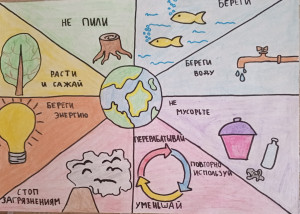 НЕ ПИЛИ
БЕРЕГИ
РАСТИ
И САЖАЙ
БЕРЕГИ
ВОДУ
БЕРЕГИ
ЭНЕРГИЮ
НЕ
МУСОРЬТЕ
ПЕРЕРАБАТЫВАЙ
ПОВТОРНО
ИСПОЛЬЗУЙ
УМЕНЬШАЙ
СТОП
ЗАГРЯЗНЕНИЯМ